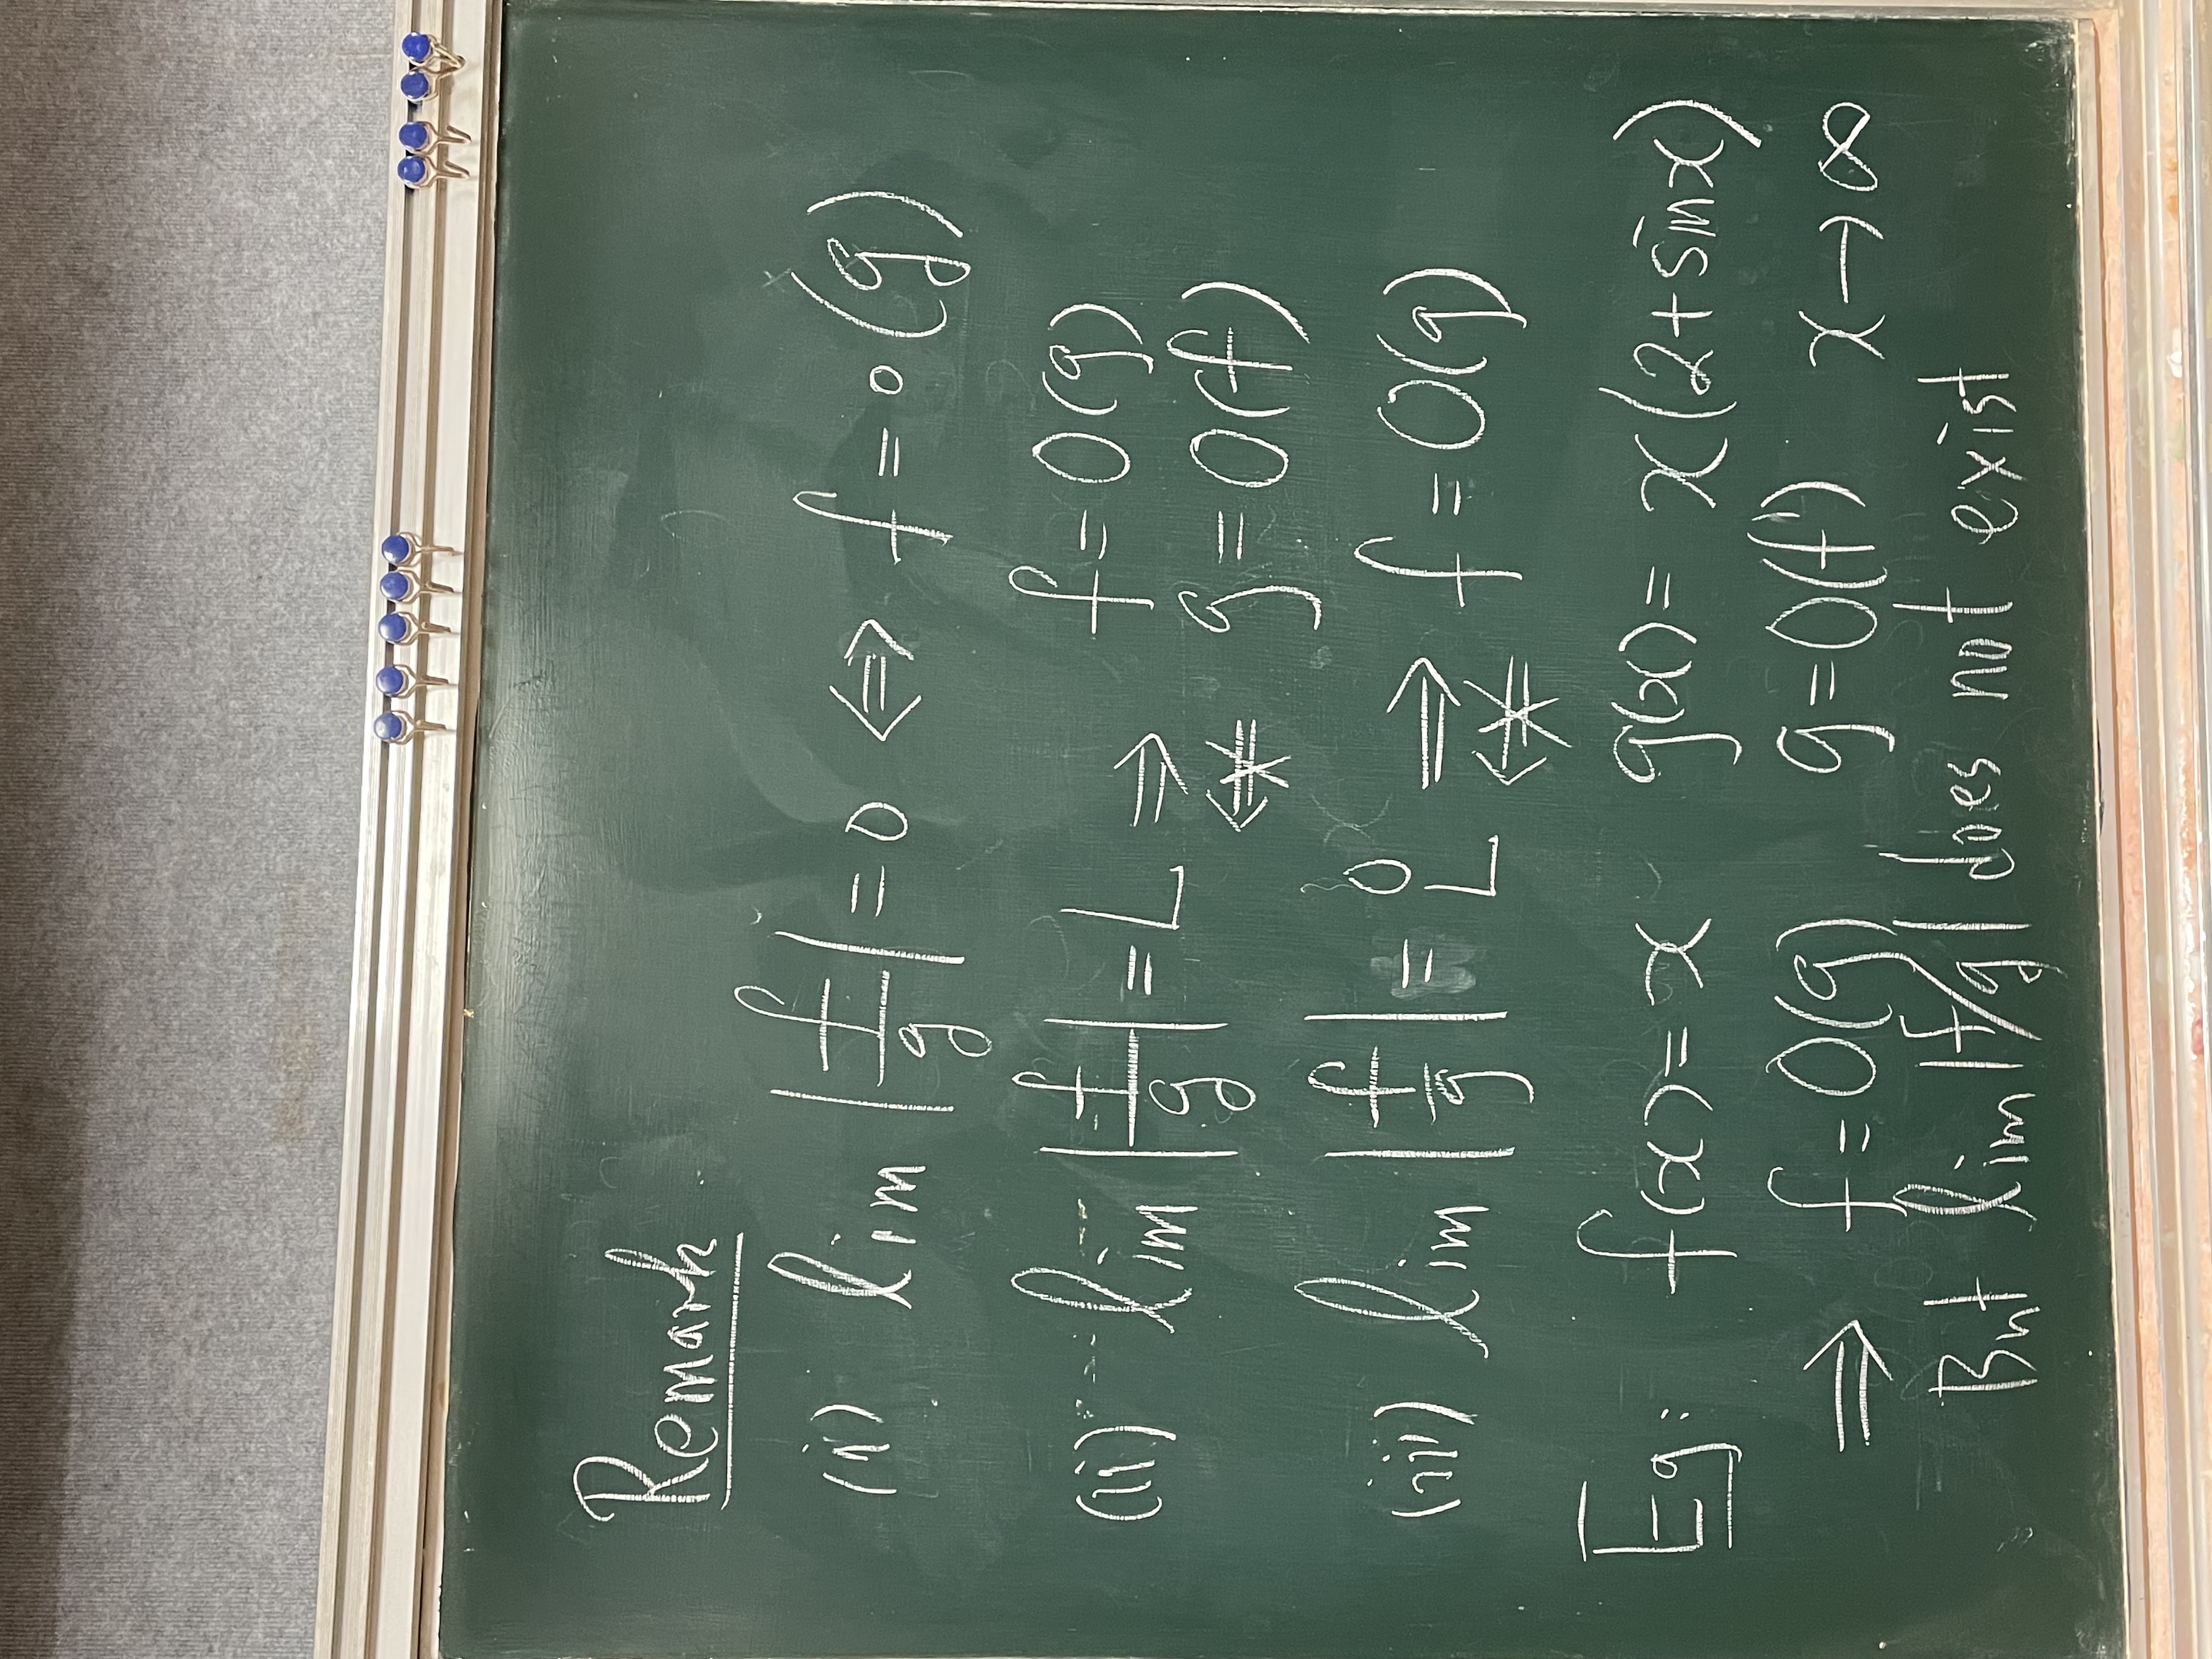 Remark
(i) lim |f/g| = 0 ⇔ f = o(g)
(ii) lim |f/g| = L ⇒ f = O(g)
⇍ g = O(f)
(iii) lim |f/g| = 0 ⇒ f = O(g)
L ⇍
Eg: f(x) = x g(x) = x(2 + sin x)
⇒ f = O(g) g = O(f) x → ∞
But lim |f/g| does not exist